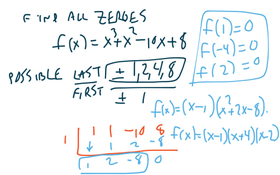 FIND ALL ZEROES
f(x) = x³+x²-10x+8
POSSIBLE LAST ± 1,2,4,8
FIRST ± 1
f(1)=0
f(-4)=0
f(2)=0
f(x)=(x-1)(x²+2x-8).
f(x)=(x-1)(x+4)(x-2)
1 | 1 1 -10 8
↓ 1 2 -8
1 2 -8 0